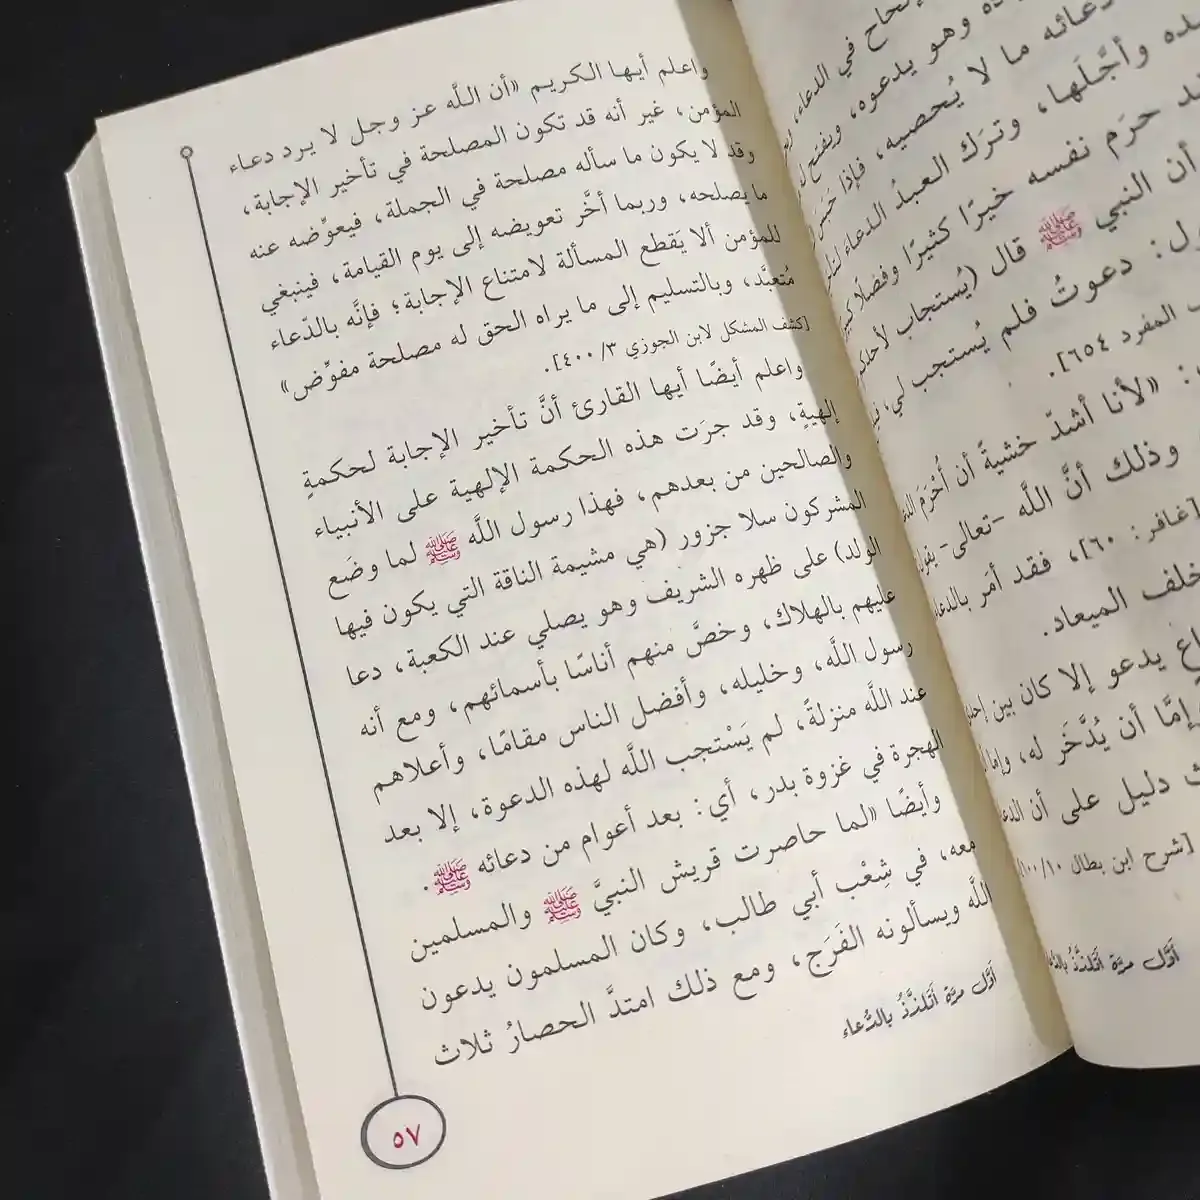 واعلم أيها الكريم «أن اللَّه عز وجل لا يرد دعاء
المؤمن، غير أنه قد تكون المصلحة في تأخير الإجابة،
وقد لا يكون ما سأله مصلحة في الجملة، فيعوِّضه عنه
ما يصلحه، وربما أخَّر تعويضه إلى يوم القيامة، فينبغي
للمؤمن ألا يَقطع المسألة لامتناع الإجابة؛ فإنَّه بالدّعاء
مُتعبَّد، وبالتسليم إلى ما يراه الحق له مصلحة مفوِّض»
[كشف المشكل لابن الجوزي ٣/ ٤٠٠].
واعلم أيضًا أيها القارئ أنَّ تأخير الإجابة لحكمةٍ
إلهيةٍ، وقد جرَت هذه الحكمة الإلهية على الأنبياء
والصالحين من بعدهم، فهذا رسول اللَّه ﷺ لما وضَع
المشركون سلا جزور (هي مشيمة الناقة التي يكون فيها
الولد) على ظهره الشريف وهو يصلي عند الكعبة، دعا
عليهم بالهلاك، وخصَّ منهم أناسًا بأسمائهم، ومع أنه
رسول اللَّه، وخليله، وأفضل الناس مقامًا، وأعلاهم
عند اللَّه منزلةً، لم يَسْتجب اللَّه لهذه الدعوة، إلا بعد
الهجرة في غزوة بدر، أي: بعد أعوام من دعائه ﷺ.
وأيضًا «لما حاصرت قريش النبيَّ ﷺ والمسلمين
معه، في شِعْب أبي طالب، وكان المسلمون يدعون
اللَّه ويسألونه الفَرَج، ومع ذلك امتدَّ الحصارُ ثلاث
أوَّل مرَّة أتلذَّذُ بالدُّعاء
٥٧
إلحاح في الدعاء،
وهو يدعوه، ويفتح
دعائه ما لا يُحصيه، فإذا
ده وأجَّلَها، وترَك العبدُ الدعاء
حرَم نفسه خيرًا كثيرًا وفضلًا
أن النبي ﷺ قال (يُستجاب لأحدكم
ول: دعوتُ فلم يُستجب لي،
المفرد ٦٥٤].
«لأنا أشدّ خشيةً أن أُحْرَمَ
وذلك أنَّ اللَّه -تعالى- يقول
[غافر: ٦٠]، فقد أمَر بالدعاء
خلف الميعاد.
يدعو إلا كان بين إحدى
إمَّا أن يُدَّخَر له، وإما
دليل على أن الدعاء
[شرح ابن بطال ١٠/ ١٠٠]
أوَّل مرَّة أتلذَّذُ بالدُّعاء